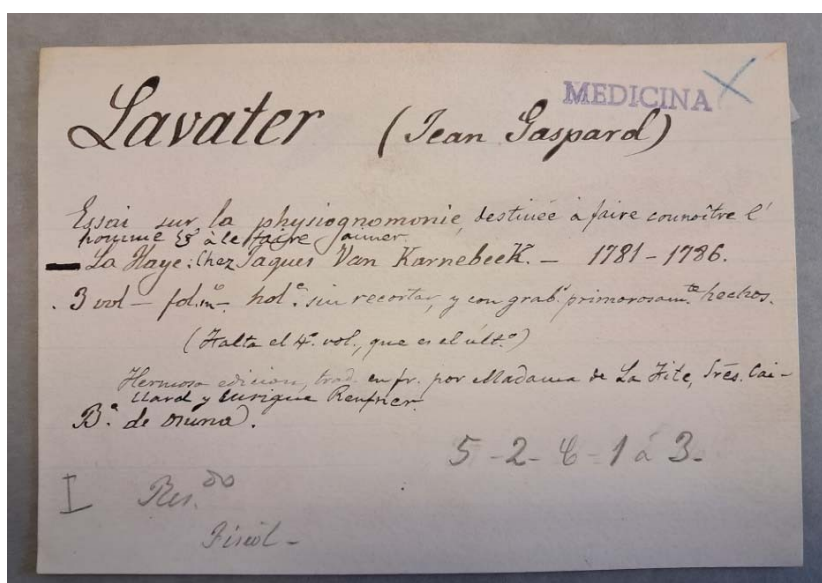 MEDICINA
Lavater (Jean Gaspard)
Essai sur la physiognomonie, destinée à faire connoître l'
homme & à le faire aimer.
— La Haye: Chez Jaques Van Karnebeek. — 1781-1786.
3 vol — fol. mº — holª sin recortar, y con grabs primorosamte hechos.
(Falta el 4º vol., que es el últº)
Hermosa edicion, trad. en fr. por Madama de La Fite, Sres. Cai-
llard y Enrique Renfner.
Bª de Osuna.
5-2- -1 á 3-
I Resdo
Fisiol-